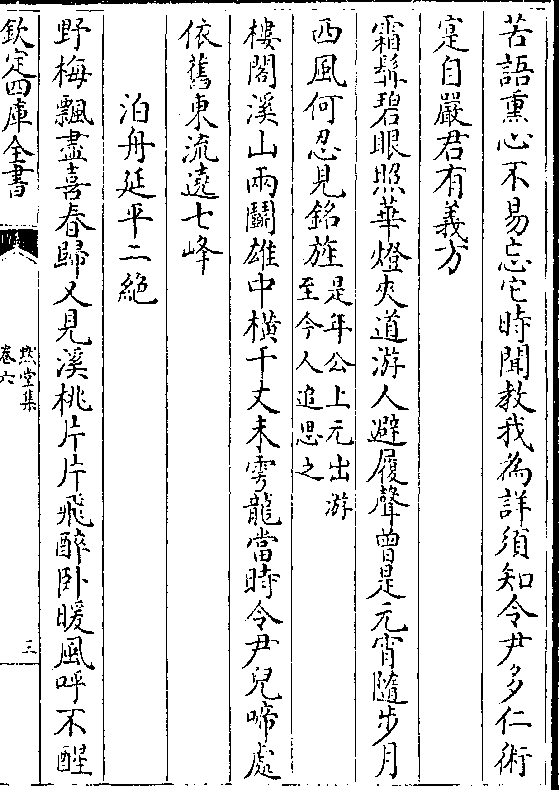 苦語熏心不易忘它時聞教我為詳須知令尹多仁術
寔自嚴君有義方
霜髯碧眼照華燈夾道游人避履聲曾是元宵隨步月
西風何忍見銘旌是年公上元出游
至今人追思之
樓閣溪山兩鬭雄中横千丈未雩龍當時令尹兒啼處
依舊東流遶七峰
泊舟延平二絶
野梅飄盡喜春歸又見溪桃片片飛醉卧暖風呼不醒
欽定四庫全書
黙堂集
卷六
三